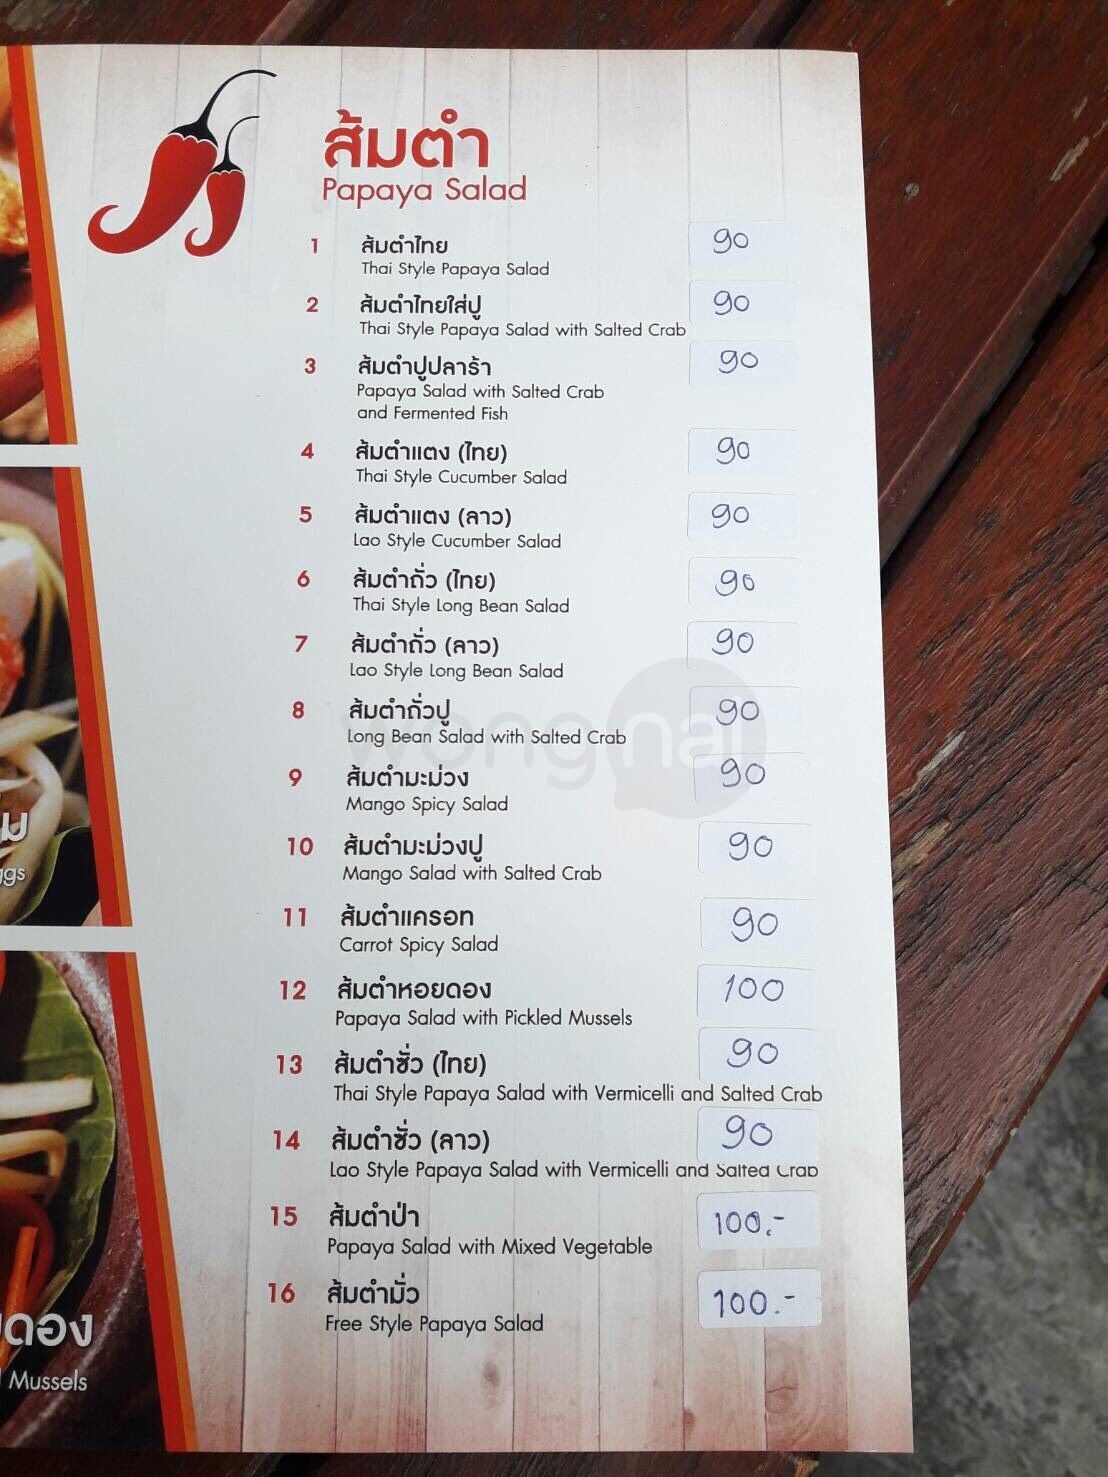 ส้มตำ
Papaya Salad
1 ส้มตำไทย 90
Thai Style Papaya Salad
2 ส้มตำไทยใส่ปู 90
Thai Style Papaya Salad with Salted Crab
3 ส้มตำปูปลาร้า 90
Papaya Salad with Salted Crab
and Fermented Fish
4 ส้มตำแตง (ไทย) 90
Thai Style Cucumber Salad
5 ส้มตำแตง (ลาว) 90
Lao Style Cucumber Salad
6 ส้มตำถั่ว (ไทย) 90
Thai Style Long Bean Salad
7 ส้มตำถั่ว (ลาว) 90
Lao Style Long Bean Salad
8 ส้มตำถั่วปู 90
Long Bean Salad with Salted Crab
wongnai
9 ส้มตำมะม่วง 90
Mango Spicy Salad
10 ส้มตำมะม่วงปู 90
Mango Salad with Salted Crab
11 ส้มตำแครอท 90
Carrot Spicy Salad
12 ส้มตำหอยดอง 100
Papaya Salad with Pickled Mussels
13 ส้มตำซั่ว (ไทย) 90
Thai Style Papaya Salad with Vermicelli and Salted Crab
14 ส้มตำซั่ว (ลาว) 90
Lao Style Papaya Salad with Vermicelli and Salted Crab
15 ส้มตำป่า 100.-
Papaya Salad with Mixed Vegetable
16 ส้มตำมั่ว 100.-
Free Style Papaya Salad
ดอง
Mussels